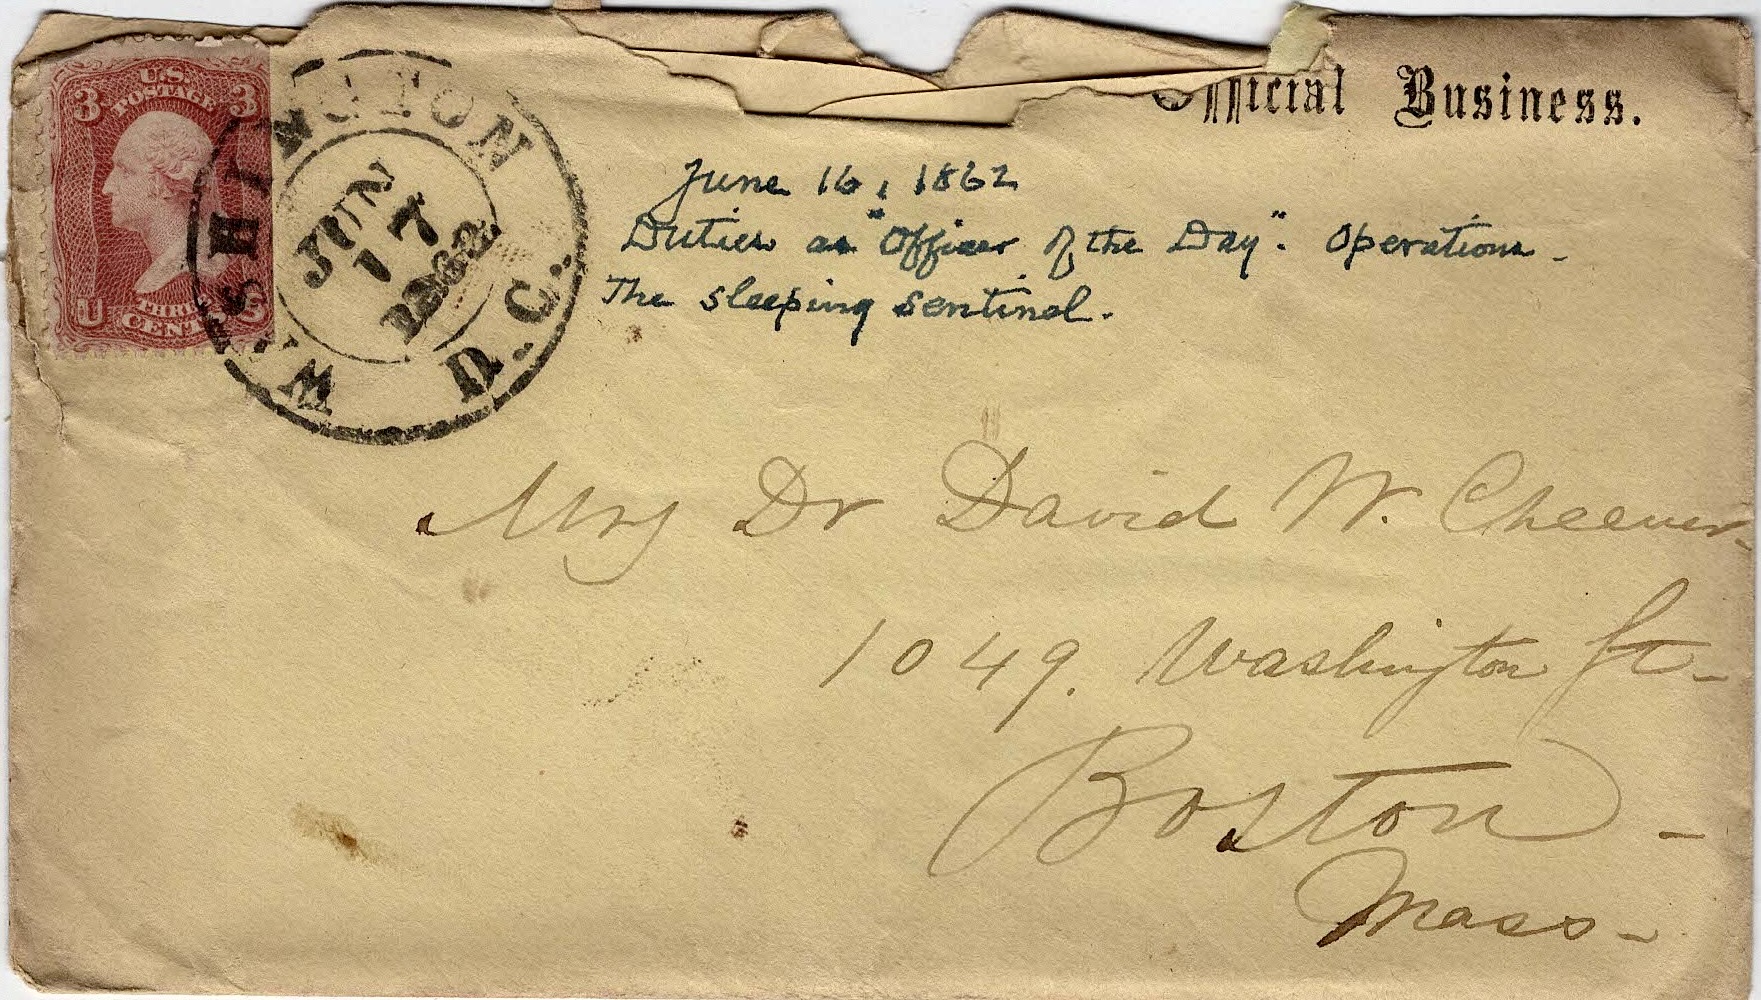 U.S.
3 POSTAGE 3
THREE
U CENTS S
WASHINGTON D.C.
JUN
17
1862
Official Business.
June 16, 1862
Duties as "Officer of the Day". Operations.
The sleeping sentinel.
Mrs Dr David W. Cheever-
1049. Washington St-
Boston -
Mass-